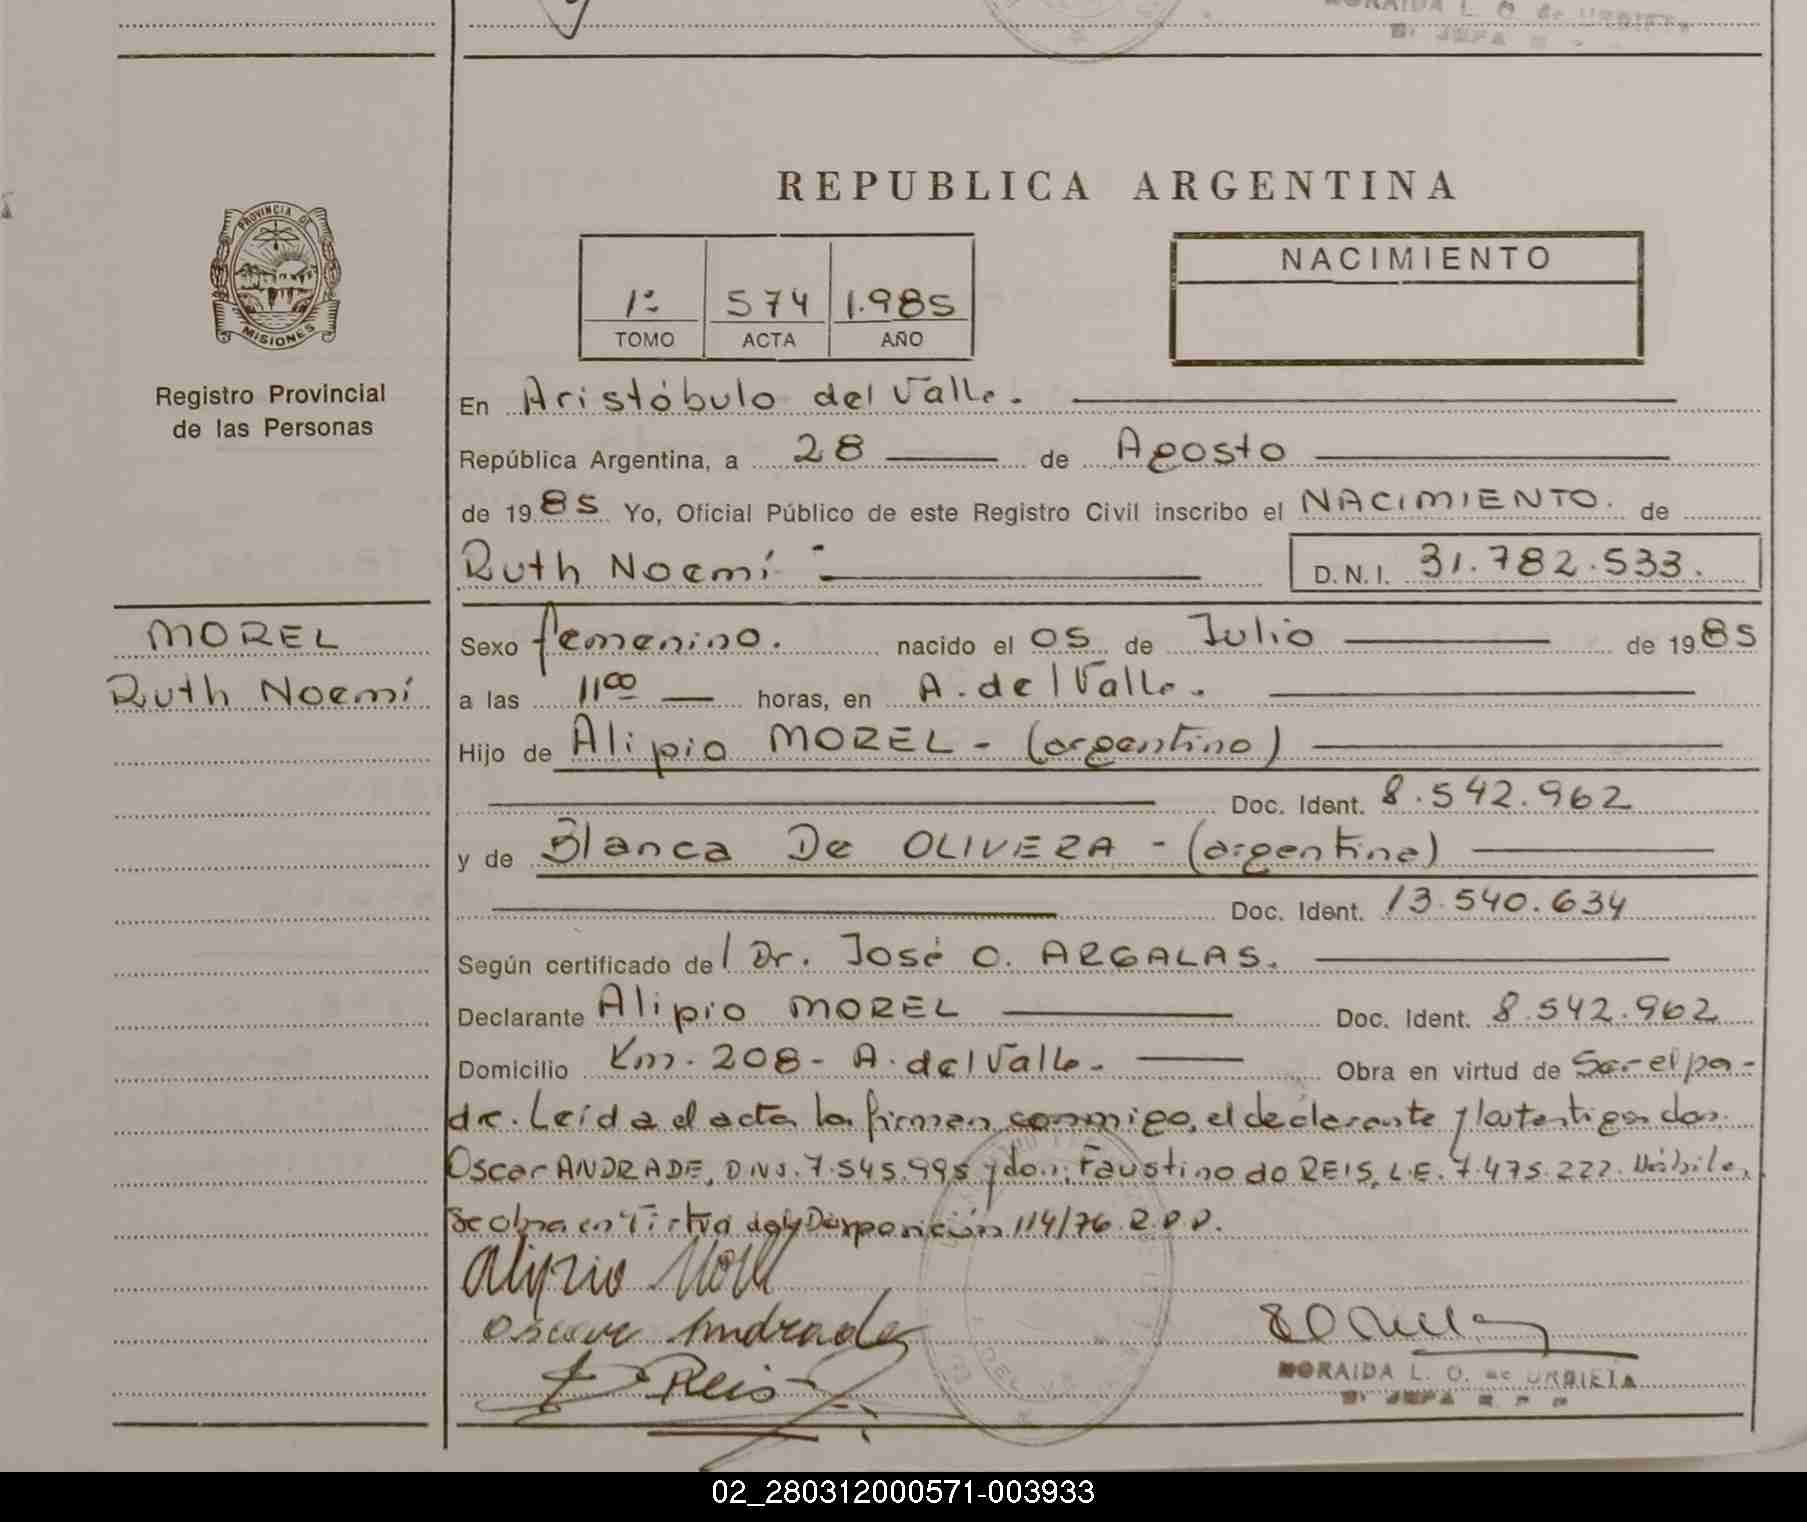 REPUBLICA ARGENTINA
PROVINCIA DE
MISIONES
Registro Provincial
de las Personas
1º 574 1.985
TOMO ACTA AÑO
NACIMIENTO
En Aristóbulo del Valle.
República Argentina, a 28 de Agosto
de 1985 Yo, Oficial Público de este Registro Civil inscribo el NACIMIENTO. de
Ruth Noemí D.N.I. 31.782.533.
MOREL
Ruth Noemí
Sexo femenino. nacido el 05 de Julio de 1985
a las 11⁰⁰ horas, en A. del Valle.
Hijo de Alipio MOREL - (argentino)
Doc. Ident. 8.542.962
y de Blanca De OLIVERA - (argentina)
Doc. Ident. 13.540.634
Según certificado del Dr. José O. ARGALAS.
Declarante Alipio MOREL Doc. Ident. 8.542.962
Domicilio Km. 208 - A. del Valle - Obra en virtud de Ser el pa-
dre. Leída el acta la firman conmigo, el declarante y los testigos don
Oscar ANDRADE, DNI. 7.545.995 y don Faustino do REIS, L.E. 7.475.222. Hábiles,
Se obra en Disposición 114/76 R.P.P.
Alipio Morel
Oscar Andrade
Reis
NORAIDA L. O. de URBIETA
JEFA
02_280312000571-003933